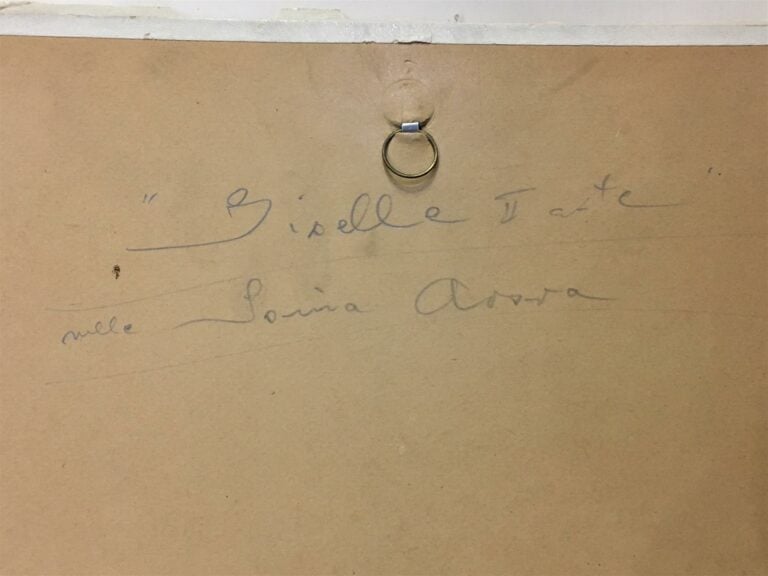 "Giselle II acte"
mlle Sonia Arova